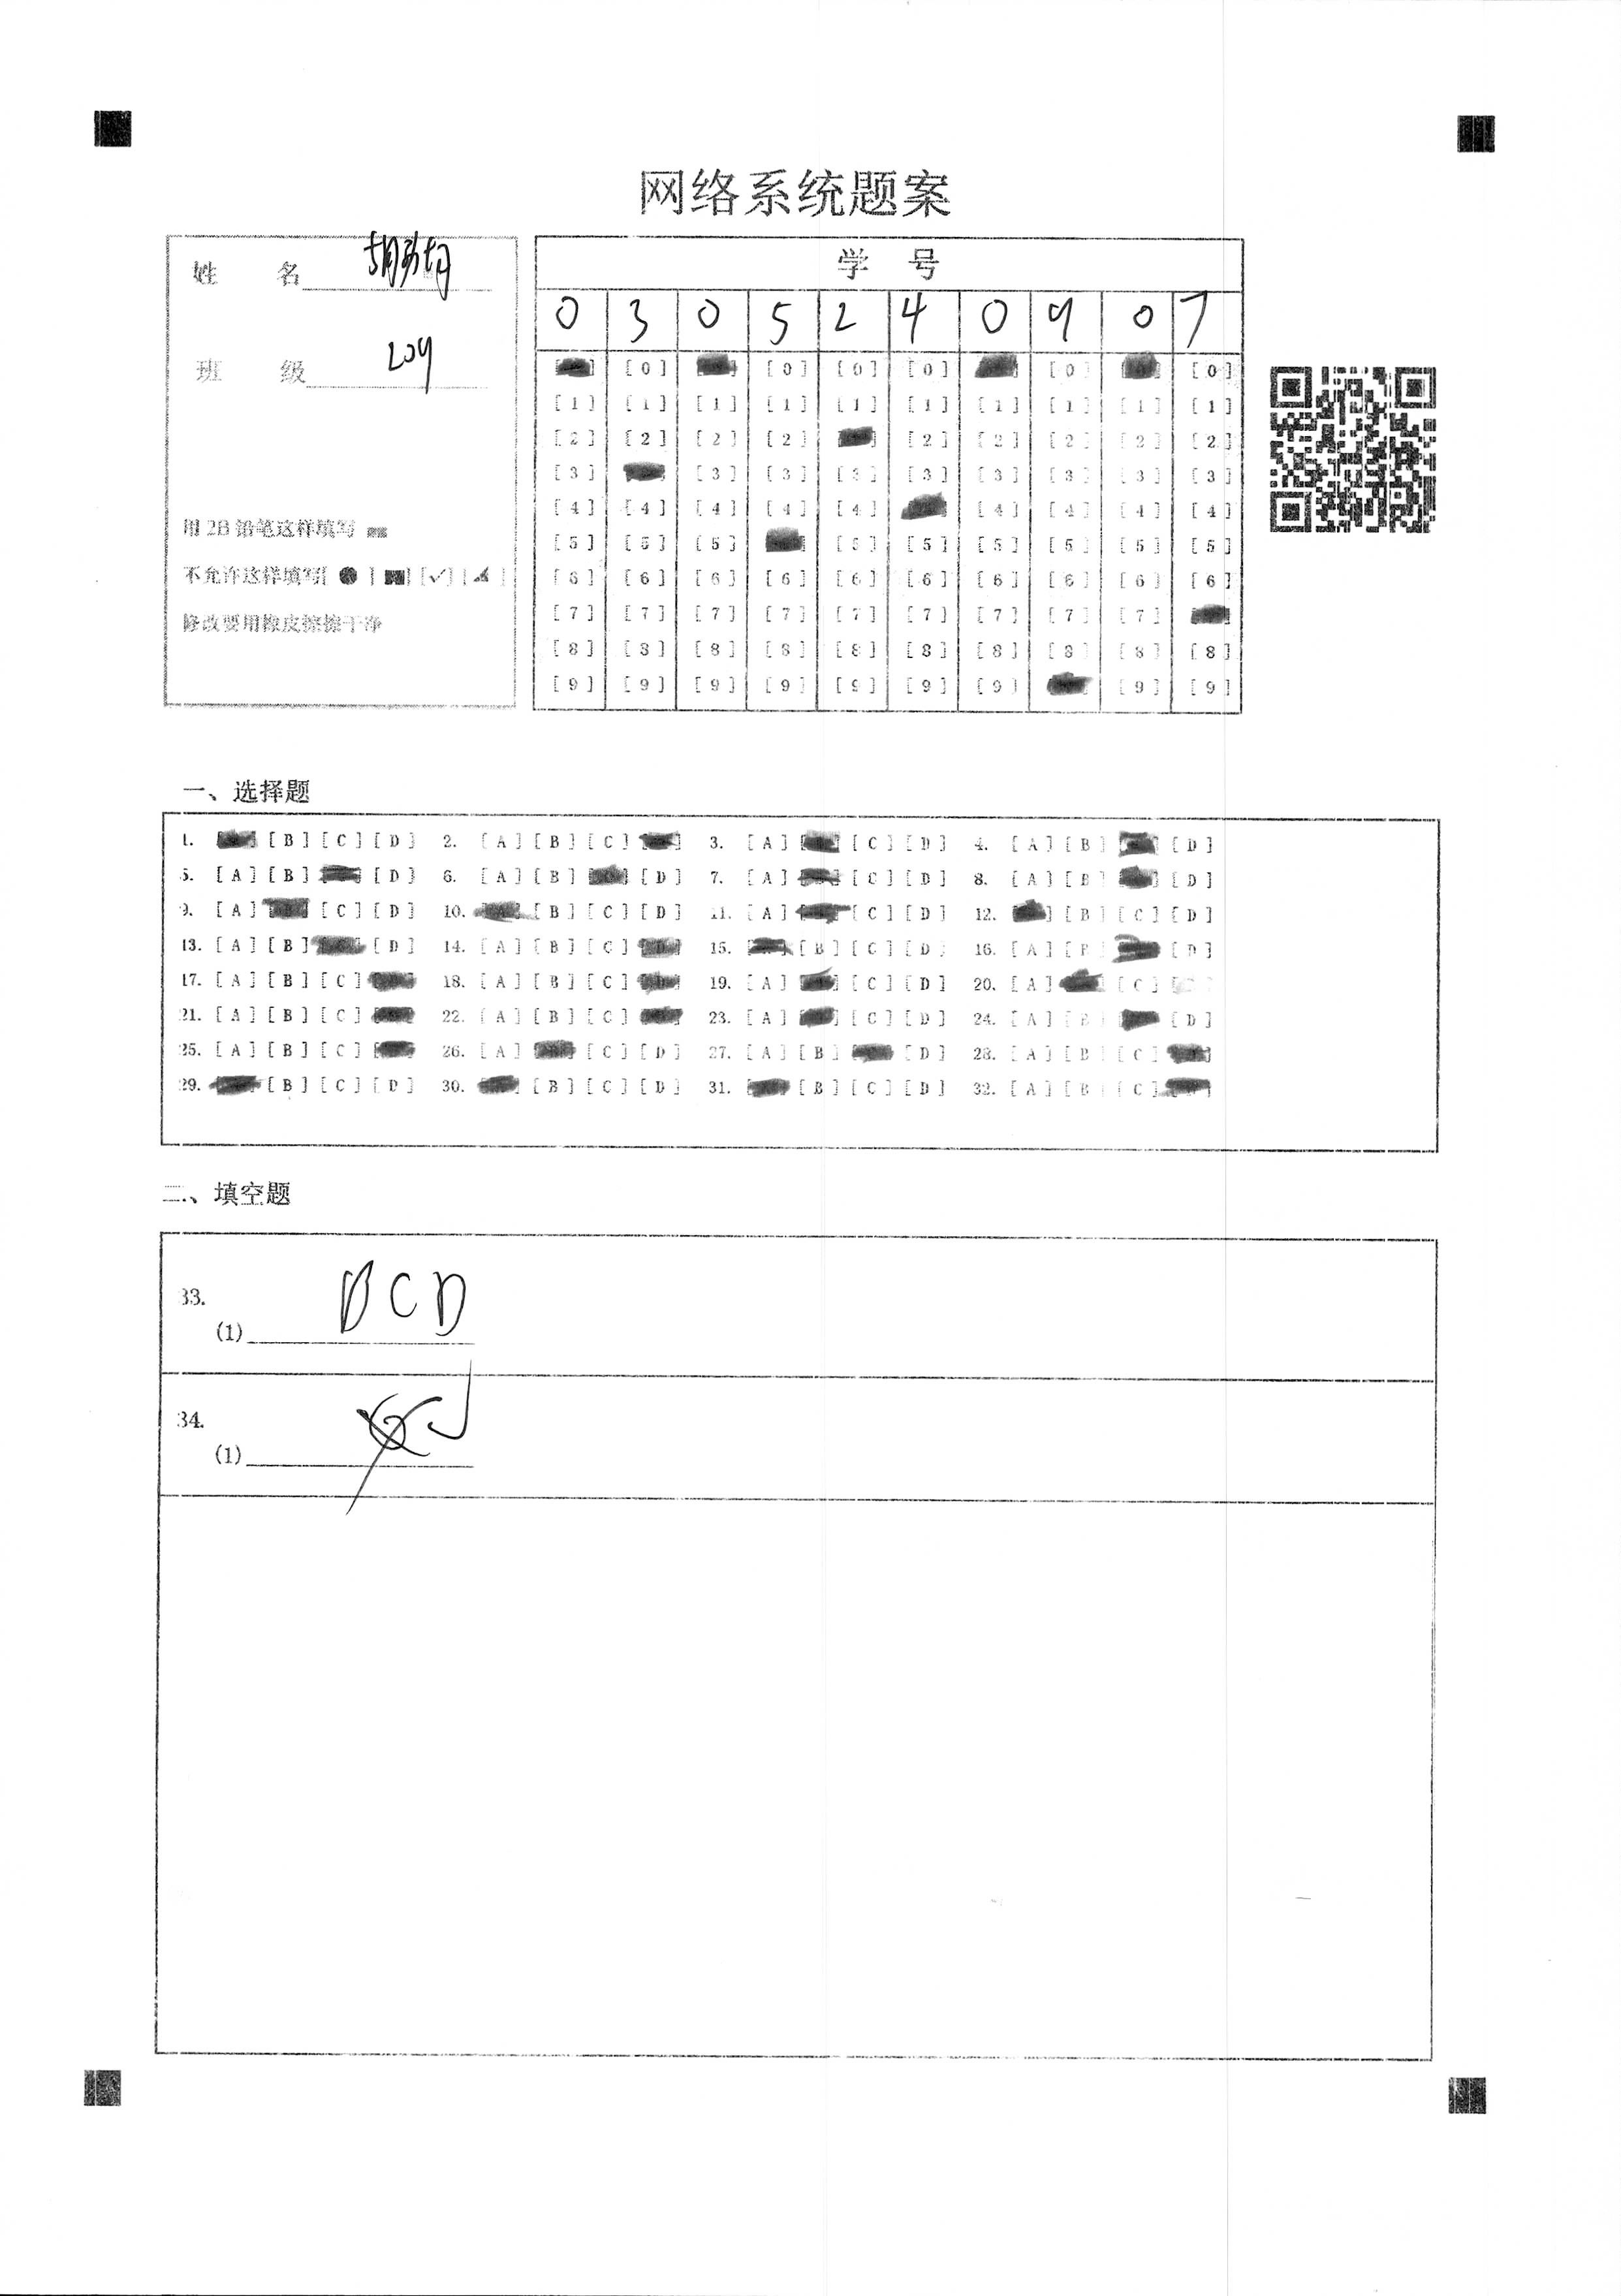 网络系统题案
姓 名
班 级 209
用 2B 铅笔这样填写
不允许这样填写[ ● ] [■] [✓] [ ]
修改要用橡皮擦擦干净
学 号
0 3 0 5 2 4 0 9 0 7
[0] [0] [0] [0] [0] [0]
[1] [1] [1] [1] [1] [1] [1] [1] [1] [1]
[2] [2] [2] [2] [2] [2] [2] [2] [2]
[3] [3] [3] [3] [3] [3] [3] [3] [3]
[4] [4] [4] [4] [4] [4] [4] [4] [4]
[5] [5] [5] [5] [5] [5] [5] [5] [5]
[6] [6] [6] [6] [6] [6] [6] [6] [6] [6]
[7] [7] [7] [7] [7] [7] [7] [7] [7]
[8] [8] [8] [8] [8] [8] [8] [8] [8] [8]
[9] [9] [9] [9] [9] [9] [9] [9] [9]
一、选择题
1. [B] [C] [D] 2. [A] [B] [C] 3. [A] [C] [D] 4. [A] [B] [D]
5. [A] [B] [D] 6. [A] [B] [D] 7. [A] [C] [D] 8. [A] [B] [D]
9. [A] [C] [D] 10. [B] [C] [D] 11. [A] [C] [D] 12. [B] [C] [D]
13. [A] [B] [D] 14. [A] [B] [C] 15. [B] [C] [D] 16. [A] [B] [D]
17. [A] [B] [C] 18. [A] [B] [C] 19. [A] [C] [D] 20. [A] [C]
21. [A] [B] [C] 22. [A] [B] [C] 23. [A] [C] [D] 24. [A] [B] [D]
25. [A] [B] [C] 26. [A] [C] [D] 27. [A] [B] [D] 28. [A] [B] [C]
29. [B] [C] [D] 30. [B] [C] [D] 31. [B] [C] [D] 32. [A] [B] [C]
二、填空题
33.
(1) BCD
34.
(1)